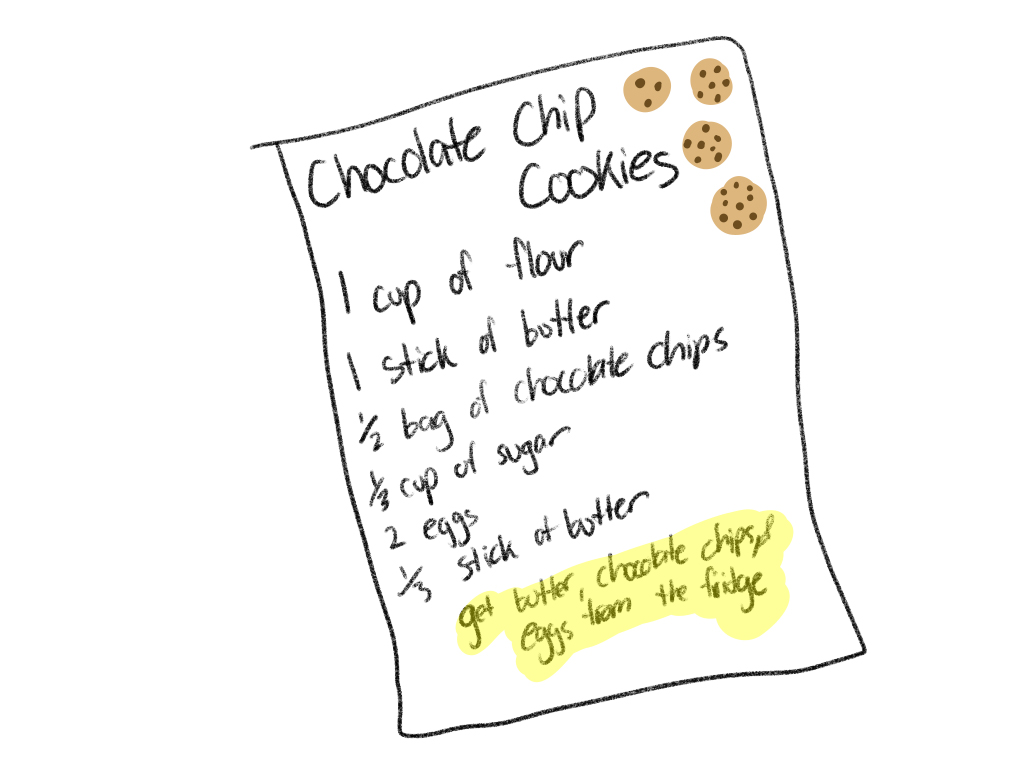 Chocolate Chip
Cookies
1 cup of flour
1 stick of butter
1/2 bag of chocolate chips
1/3 cup of sugar
2 eggs
1/3 stick of butter
get butter, chocolate chips, &
eggs from the fridge